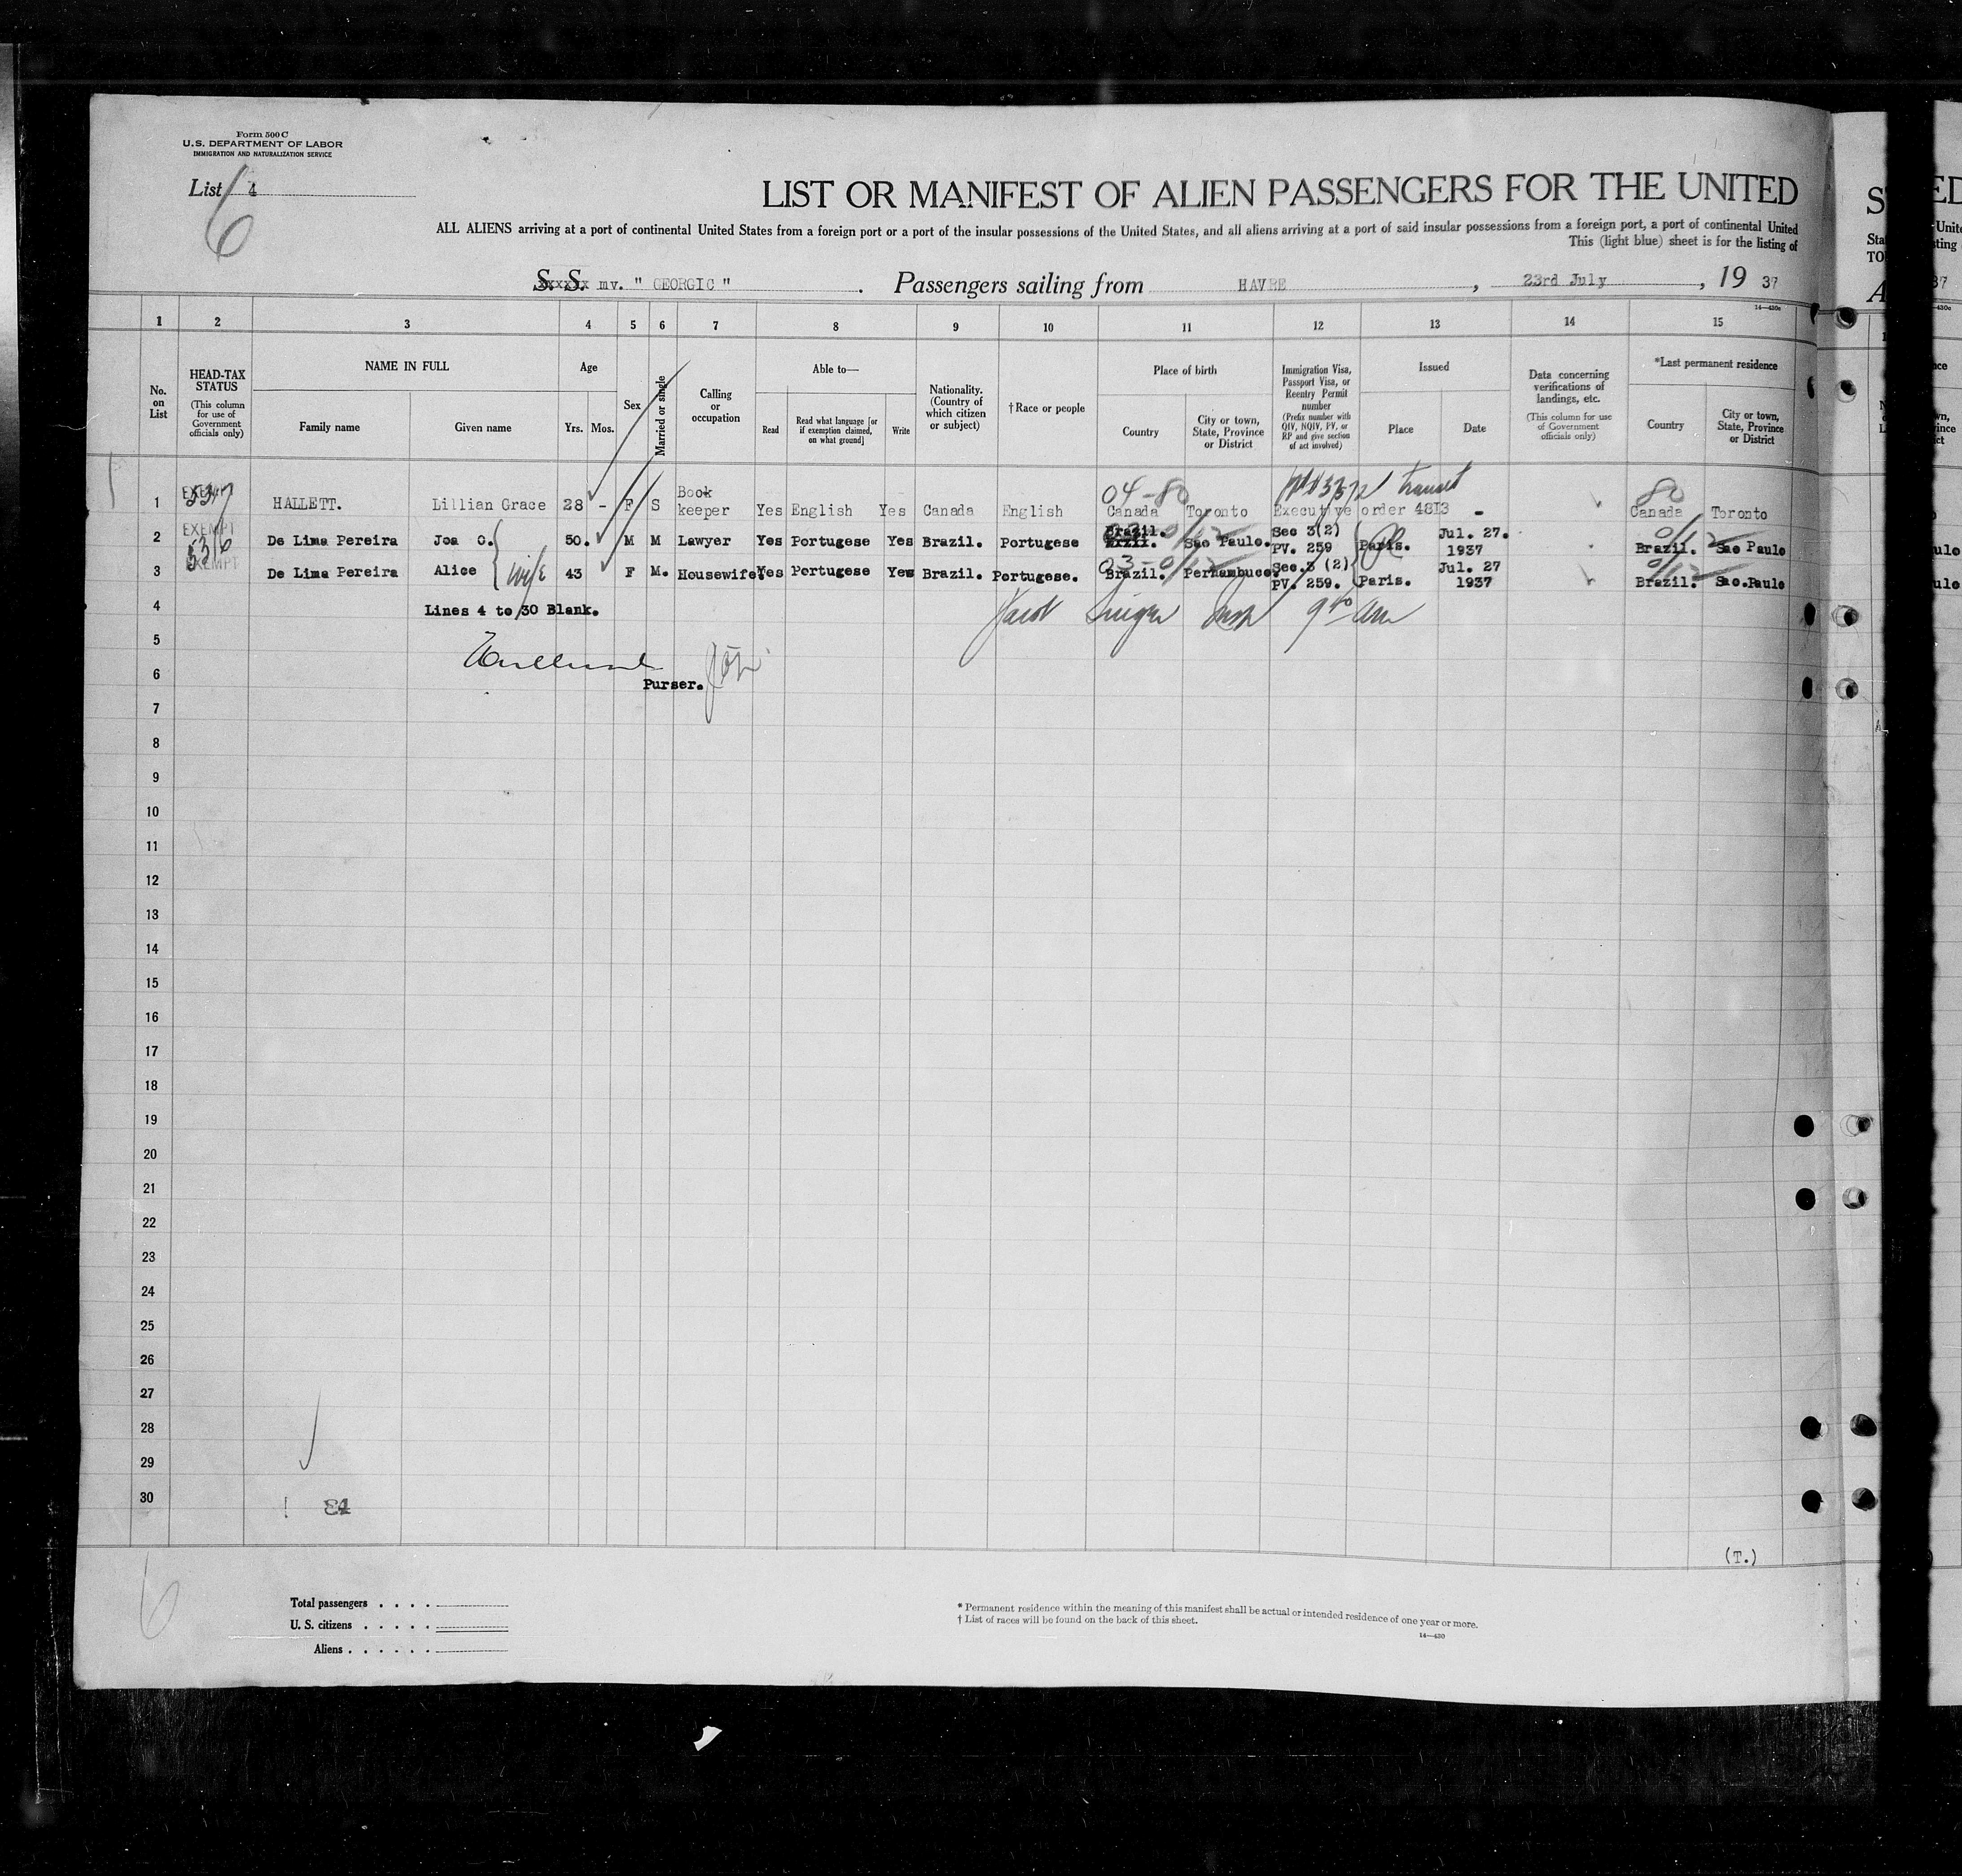 Form 500 C
U.S. DEPARTMENT OF LABOR
IMMIGRATION AND NATURALIZATION SERVICE
List 4
6
LIST OR MANIFEST OF ALIEN PASSENGERS FOR THE UNITED
ALL ALIENS arriving at a port of continental United States from a foreign port or a port of the insular possessions of the United States, and all aliens arriving at a port of said insular possessions from a foreign port, a port of continental United
This (light blue) sheet is for the listing of
S. S. mv. " GEORGIC " Passengers sailing from HAVRE, 23rd July, 19 37
14—430c
1 2 3 4 5 6 7 8 9 10 11 12 13 14 15
No. on List
HEAD-TAX STATUS (This column for use of Government officials only)
NAME IN FULL
Family name
Given name
Age
Yrs. Mos.
Sex
Married or single
Calling or occupation
Able to—
Read
Read what language [or if exemption claimed, on what ground]
Write
Nationality. (Country of which citizen or subject)
†Race or people
Place of birth
Country
City or town, State, Province or District
Immigration Visa, Passport Visa, or Reentry Permit number (Prefix number with QIV, NQIV, PV, or RP and give section of act involved)
Issued
Place
Date
Data concerning verifications of landings, etc. (This column for use of Government officials only)
*Last permanent residence
Country
City or town, State, Province or District
04-80 transit 80
1 EXEMPT HALLETT. Lillian Grace 28 - F S Book keeper Yes English Yes Canada English Canada Toronto Executive order 4813 - Canada Toronto
2 EXEMPT De Lima Pereira Joa C. 50. M M Lawyer Yes Portugese Yes Brazil. Portugese Brazil. Sao Paulo. Sec 3(2) PV. 259 Paris. Jul. 27. 1937 Brazil. Sao Paulo
3 EXEMPT De Lima Pereira Alice wife 43 F M. Housewife. Yes Portugese Yes Brazil. Portugese. Brazil. Pernambuco. Sec.3 (2) PV. 259. Paris. Jul. 27 1937 Brazil. Sao.Paulo
4 Lines 4 to 30 Blank.
5
6 Purser.
7
8
9
10
11
12
13
14
15
16
17
18
19
20
21
22
23
24
25
26
27
28
29
30
(T.)
6
Total passengers . . . .
U. S. citizens . . . . .
Aliens . . . . . .
* Permanent residence within the meaning of this manifest shall be actual or intended residence of one year or more.
† List of races will be found on the back of this sheet.
14—430